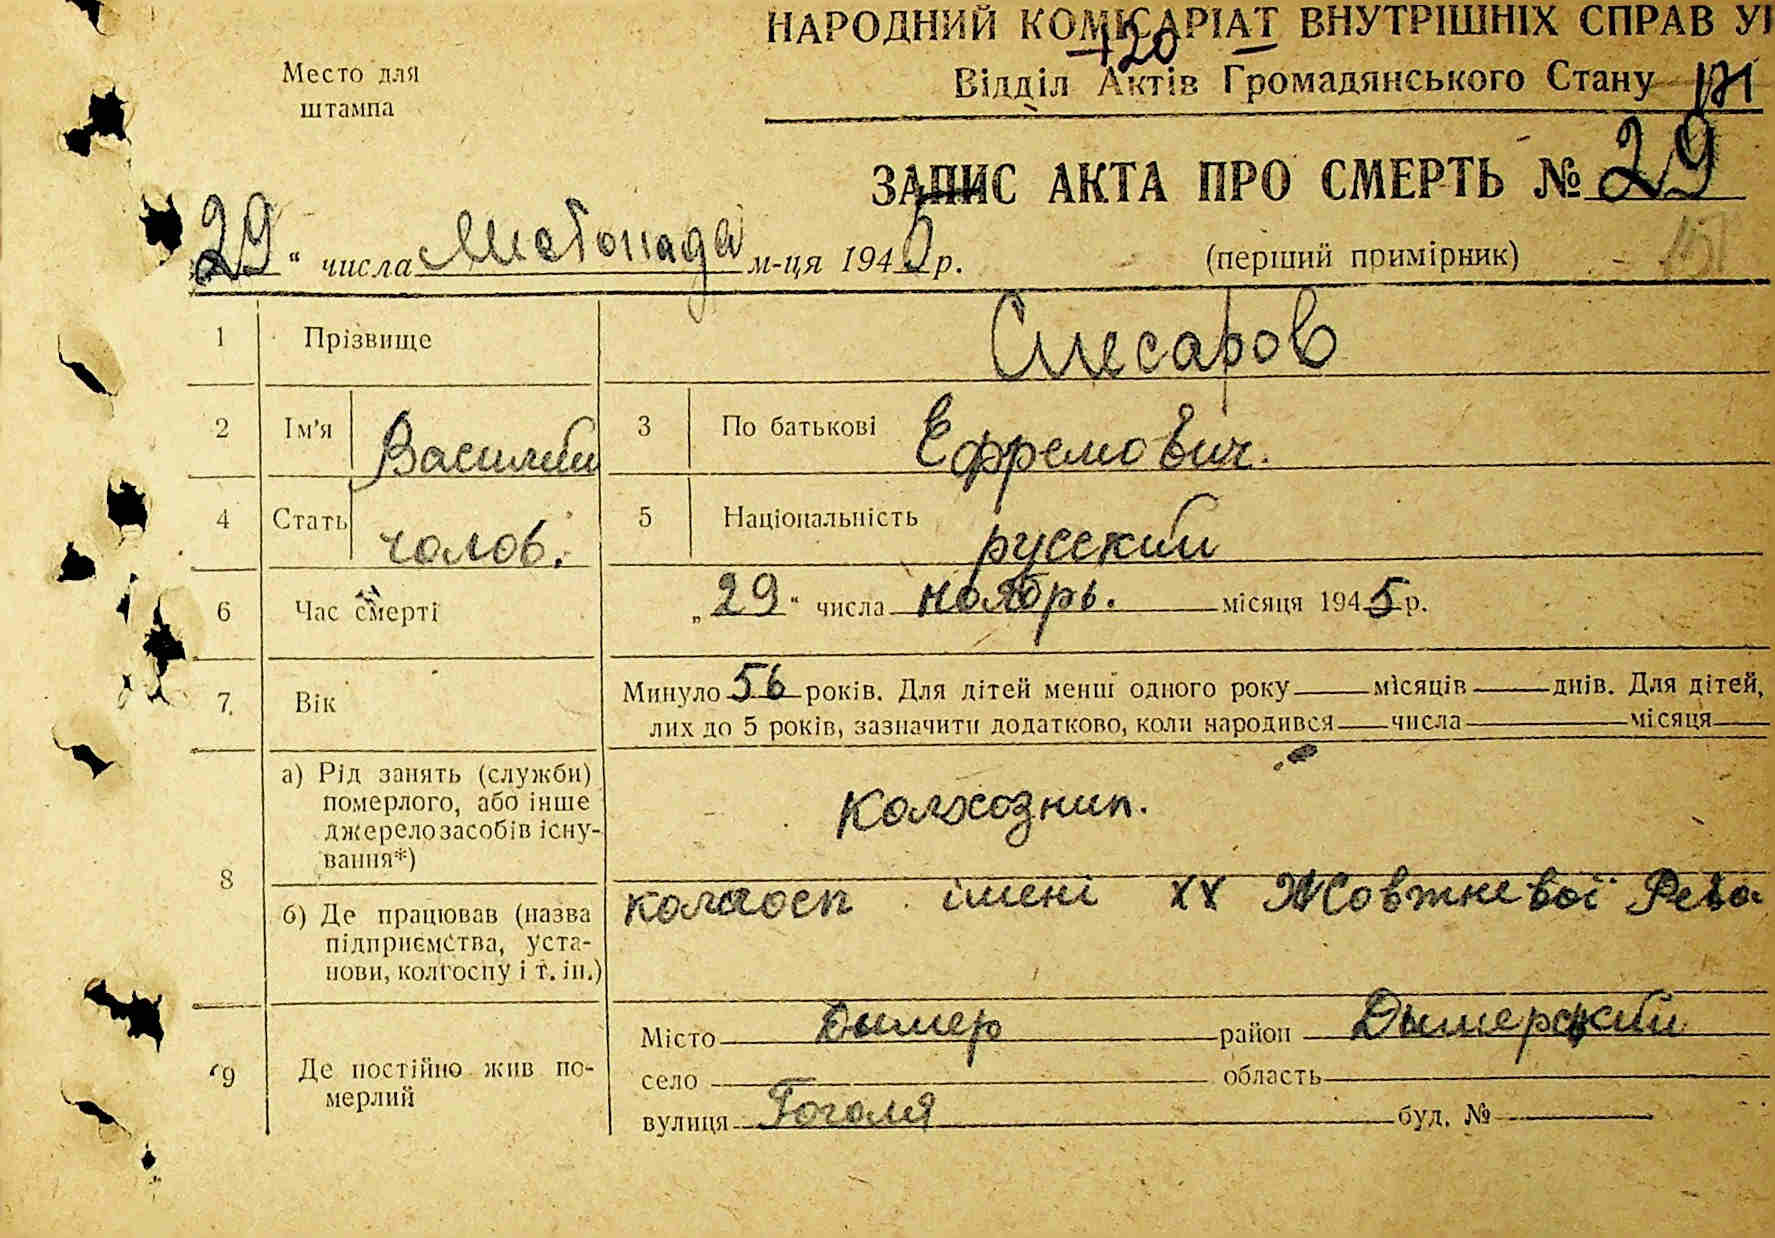 НАРОДНИЙ КОМІСАРІАТ ВНУТРІШНІХ СПРАВ
420
Место для
штампа
Відділ Актів Громадянського Стану
ЗАПИС АКТА ПРО СМЕРТЬ № 29
29 " числа Листопада м-ця 1945 р.
(перший примірник)
1 Прізвище Слесаров
2 Ім'я Василий 3 По батькові Ефремович.
4 Стать чолов. 5 Національність русский
6 Час смерті „ 29 " числа ноябрь. місяця 1945 р.
7. Вік Минуло 56 років. Для дітей менш одного року місяців днів. Для дітей,
лих до 5 років, зазначити додатково, коли народився числа місяця
8 а) Рід занять (служби)
померлого, або інше
джерело засобів існу-
вання*)
Колхозник.
б) Де працював (назва
підприємства, уста-
нови, колгоспу і т. ін.)
колгосп імені XX Жовтневої Рево
9 Де постійно жив по-
мерлий
Місто Дымер район Дымерский
село область
вулиця Гоголя буд. №